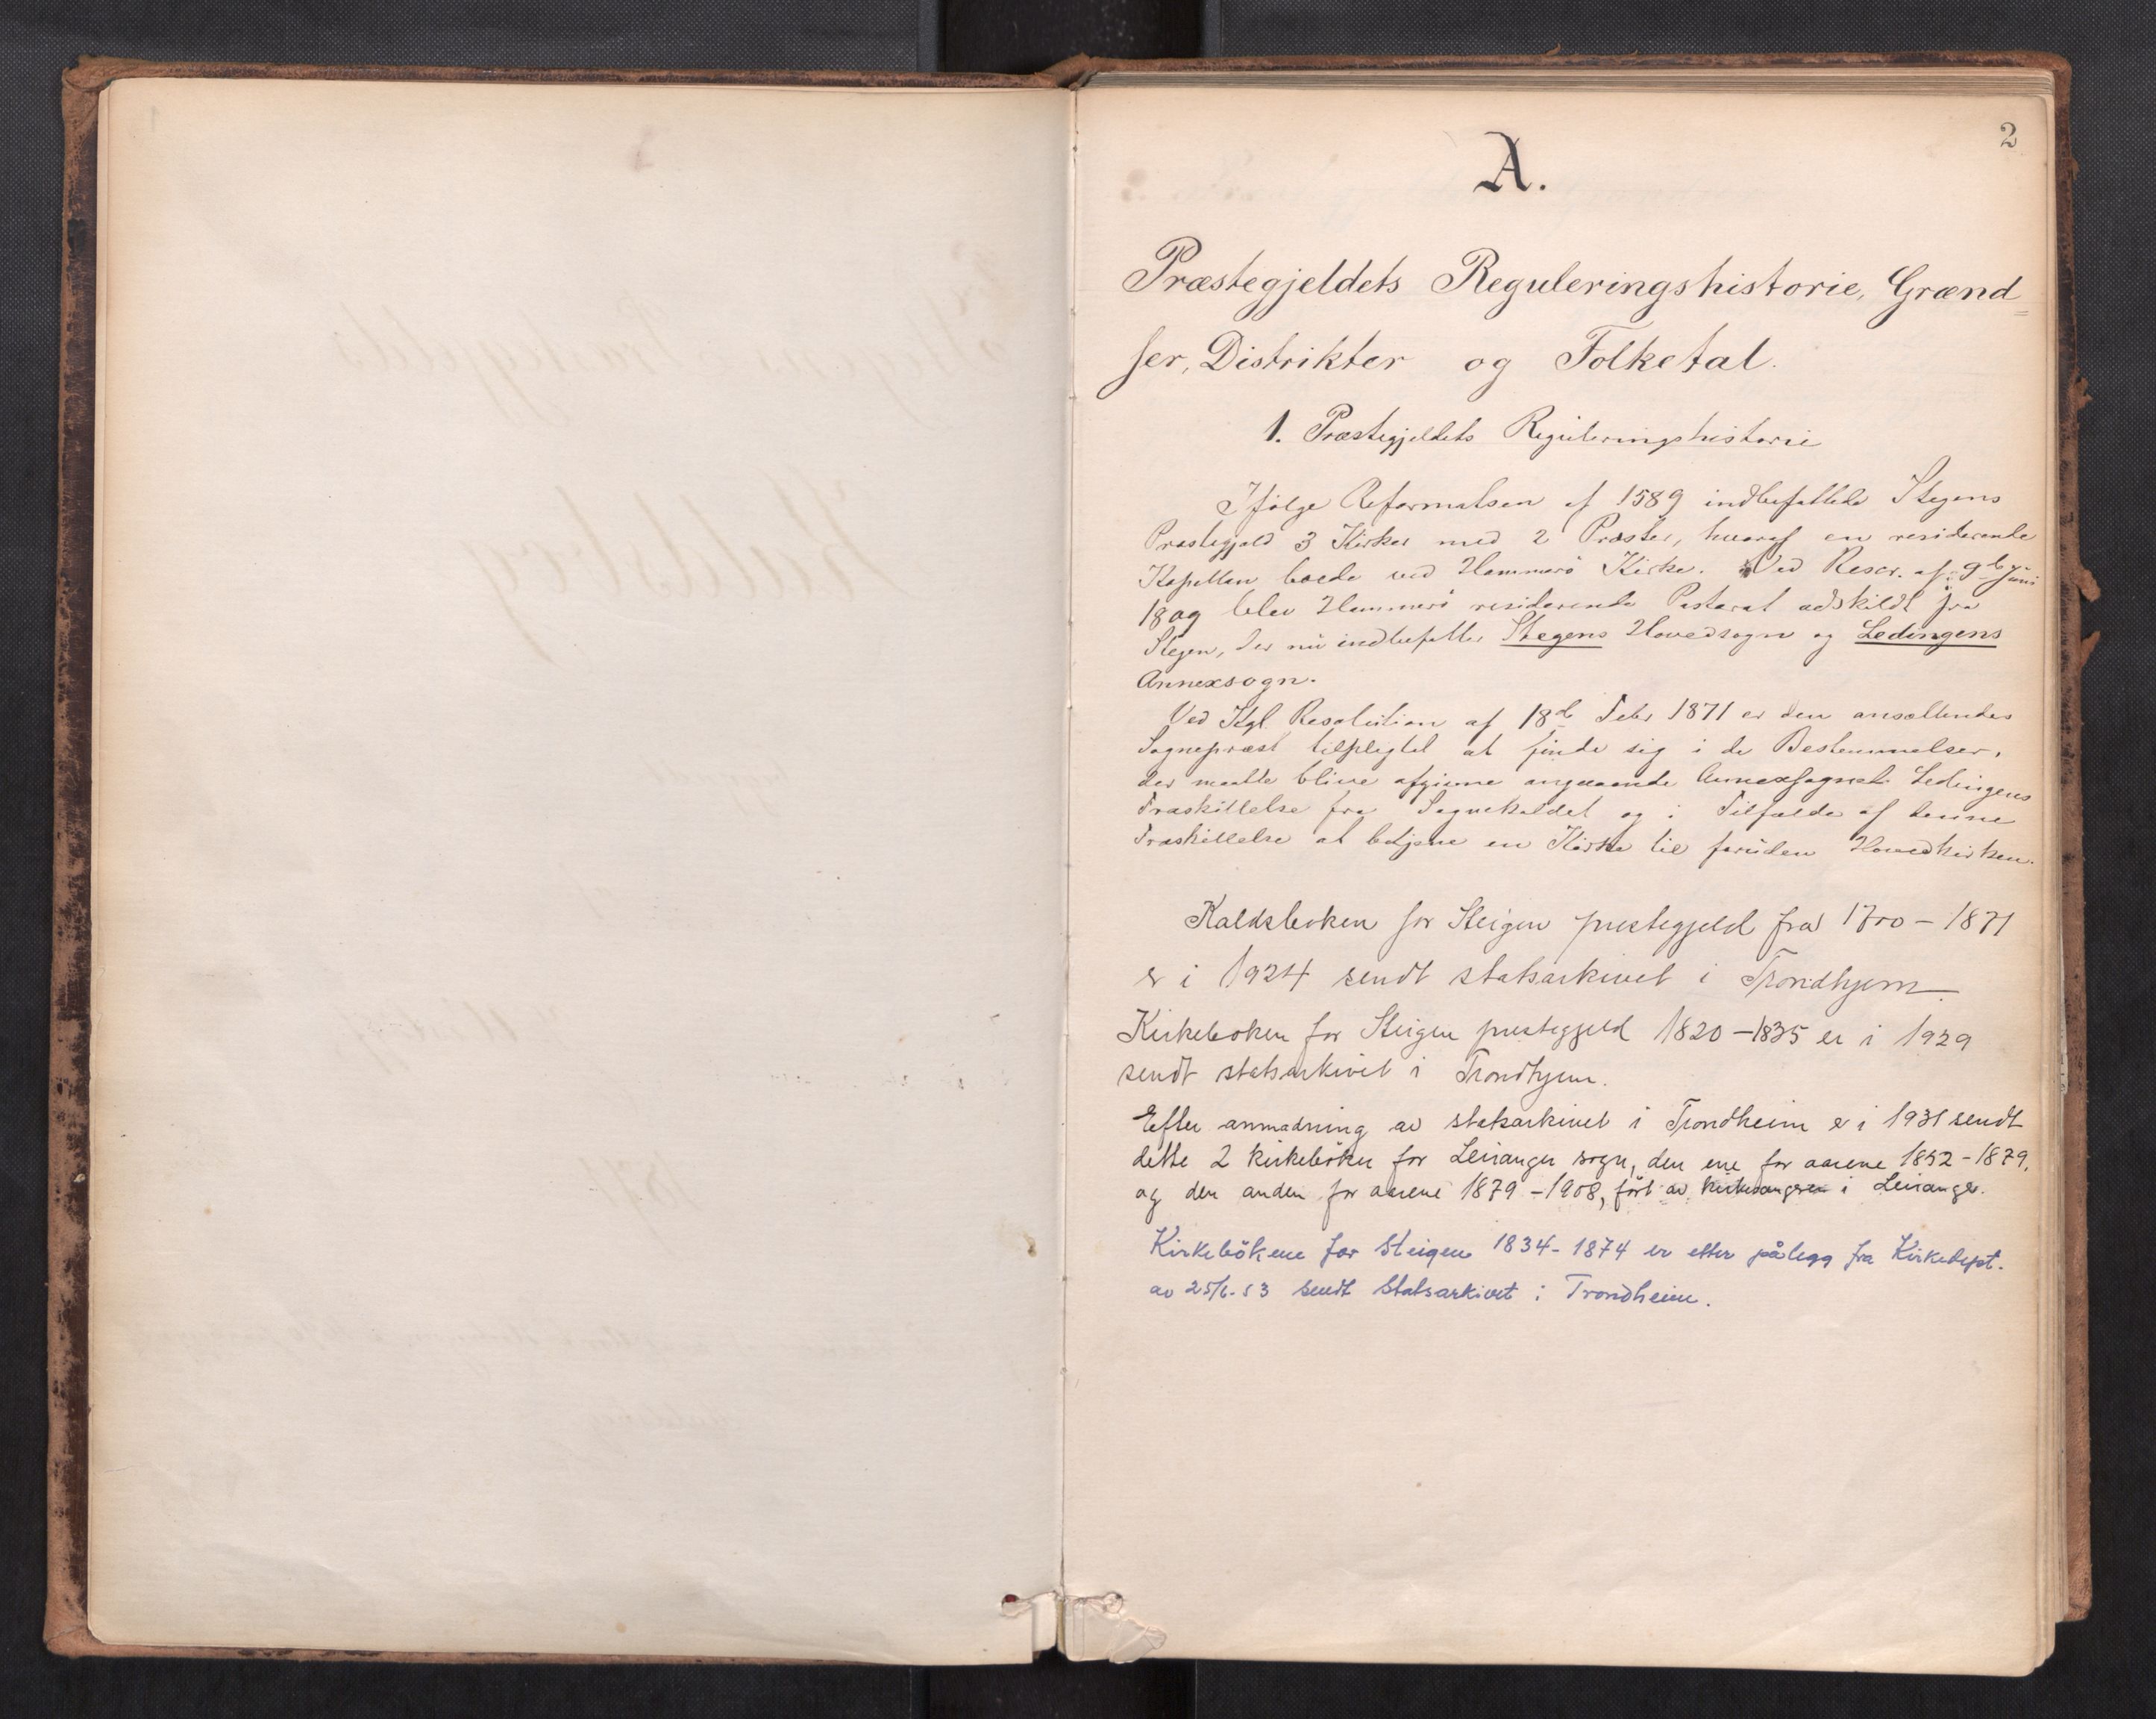 2
A.
Præstegjeldets Reguleringshistorie, Grænd=
ser, Distrikter og Folketal.
1. Præstegjeldets Reguleringshistorie
Ifølge Reformatsen af 1589 indbefattede Stegens
Præstegjeld 3 Kirker med 2 Præster, hvoraf en residerende
Kapellan boede ved Hammerö Kirke. Ved Rescr. af 9de Juni
1809 blev Hammerö residerende Pastorat adskildt fra
Stegen, der nu indbefatter Stegens Hovedsogn og Ledingens
Annexsogn.
Ved Kgl. Resolution af 18de Febr 1871 er den ansættendes
Sognepræst tilpligtet at finde sig i de Bestemmelser,
der maatte blive afgivne angaaende Annexsognet Ledingens
Fraskillelse fra Sognekaldet og i Tilfælde af denne
Fraskillelse at betjene en Kirke til foruden Hovedkirken.
Kaldsboken for Steigen prestegjeld fra 1700 - 1871
er i 1924 sendt statsarkivet i Trondhjem.
Kirkeboken for Steigen prestegjeld 1820 - 1835 er i 1929
sendt statsarkivet i Trondhjem.
Efter anmodning av statsarkivet i Trondheim er i 1931 sendt
dette 2 kirkebøker for Leiranger sogn, den ene for aarene 1852 - 1879,
og den anden for aarene 1879 - 1908, ført av kirkesangeren i Leiranger.
Kirkebökene for Steigen 1834 - 1874 er etter pålegg fra Kirkedept.
av 25/6-53 sendt Statsarkivet i Trondheim.